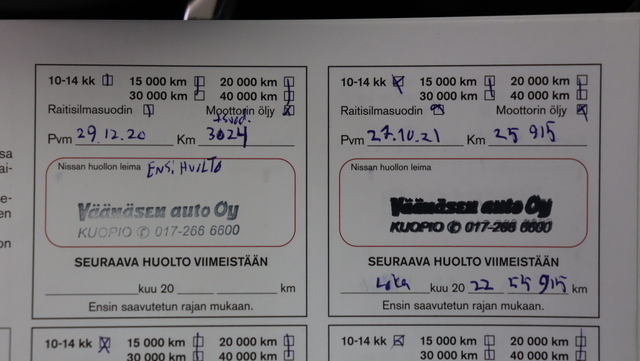 10-14 kk 15 000 km 20 000 km
30 000 km 40 000 km
Raitisilmasuodin Moottorin öljy
Pvm 29.12.20 Km 3024
Nissan huollon leima ENSIHUOLTO
Väänäsen auto Oy
KUOPIO ✆ 017-266 6600
SEURAAVA HUOLTO VIIMEISTÄÄN
kuu 20 km
Ensin saavutetun rajan mukaan.
10-14 kk 15 000 km 20 000 km
30 000 km 40 000 km
Raitisilmasuodin Moottorin öljy
Pvm 27.10.21 Km 25 915
Nissan huollon leima
Väänäsen auto Oy
KUOPIO ✆ 017-266 6600
SEURAAVA HUOLTO VIIMEISTÄÄN
Loka kuu 20 22 55 915 km
Ensin saavutetun rajan mukaan.
10-14 kk 15 000 km 20 000 km
30 000 km 40 000 km
10-14 kk 15 000 km 20 000 km
30 000 km 40 000 km